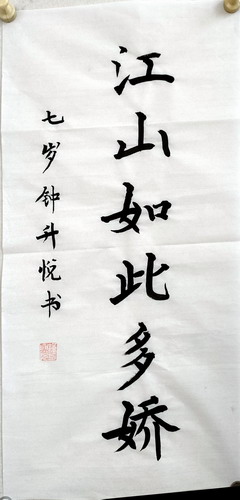 江山如此多娇
七岁钟升悦书